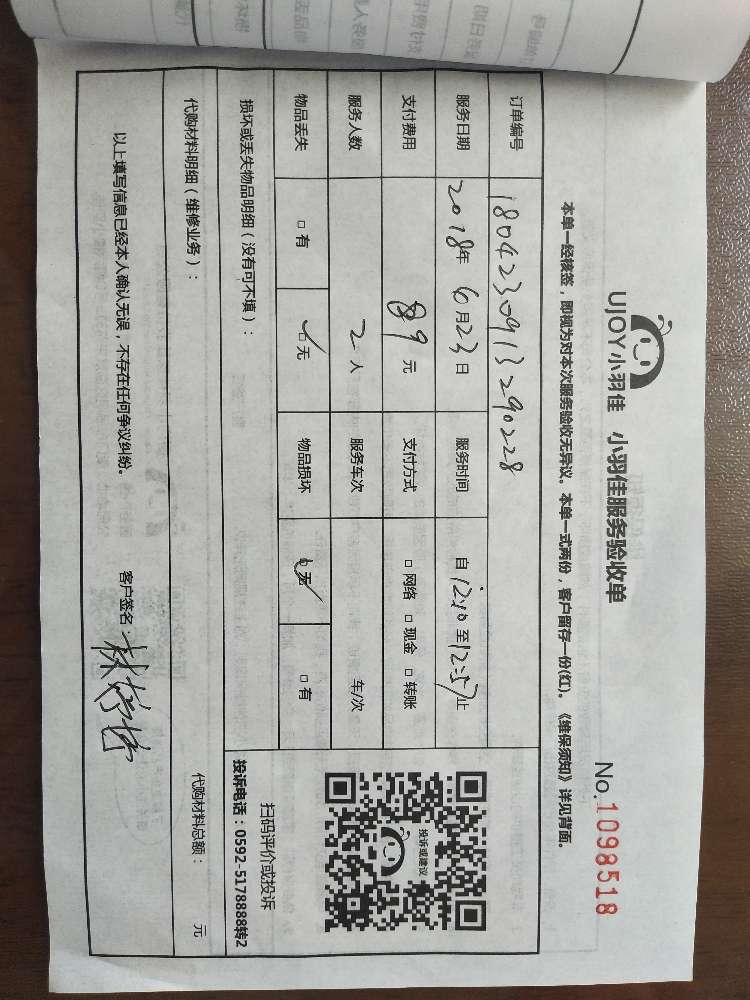 UJOY小羽佳 小羽佳服务验收单
No.1098518
本单一经核签，即视为对本次服务验收无异议。本单一式两份，客户留存一份(红)。《维保须知》详见背面。
订单编号 180423091329022 8
服务日期 2018年 6月23日 服务时间 自12:10至12:57止
支付费用 89元 支付方式 □网络 □现金 □转账
服务人数 2人 服务车次 车/次
物品丢失 □有 □无 物品损坏 □无 □有
损坏或丢失物品明细（没有可不填）：
投诉或建议
扫码评价或投诉
投诉电话：0592-5178888转2
代购材料明细（维修业务）： 代购材料总额： 元
以上填写信息已经本人确认无误，不存在任何争议纠纷。 客户签名：